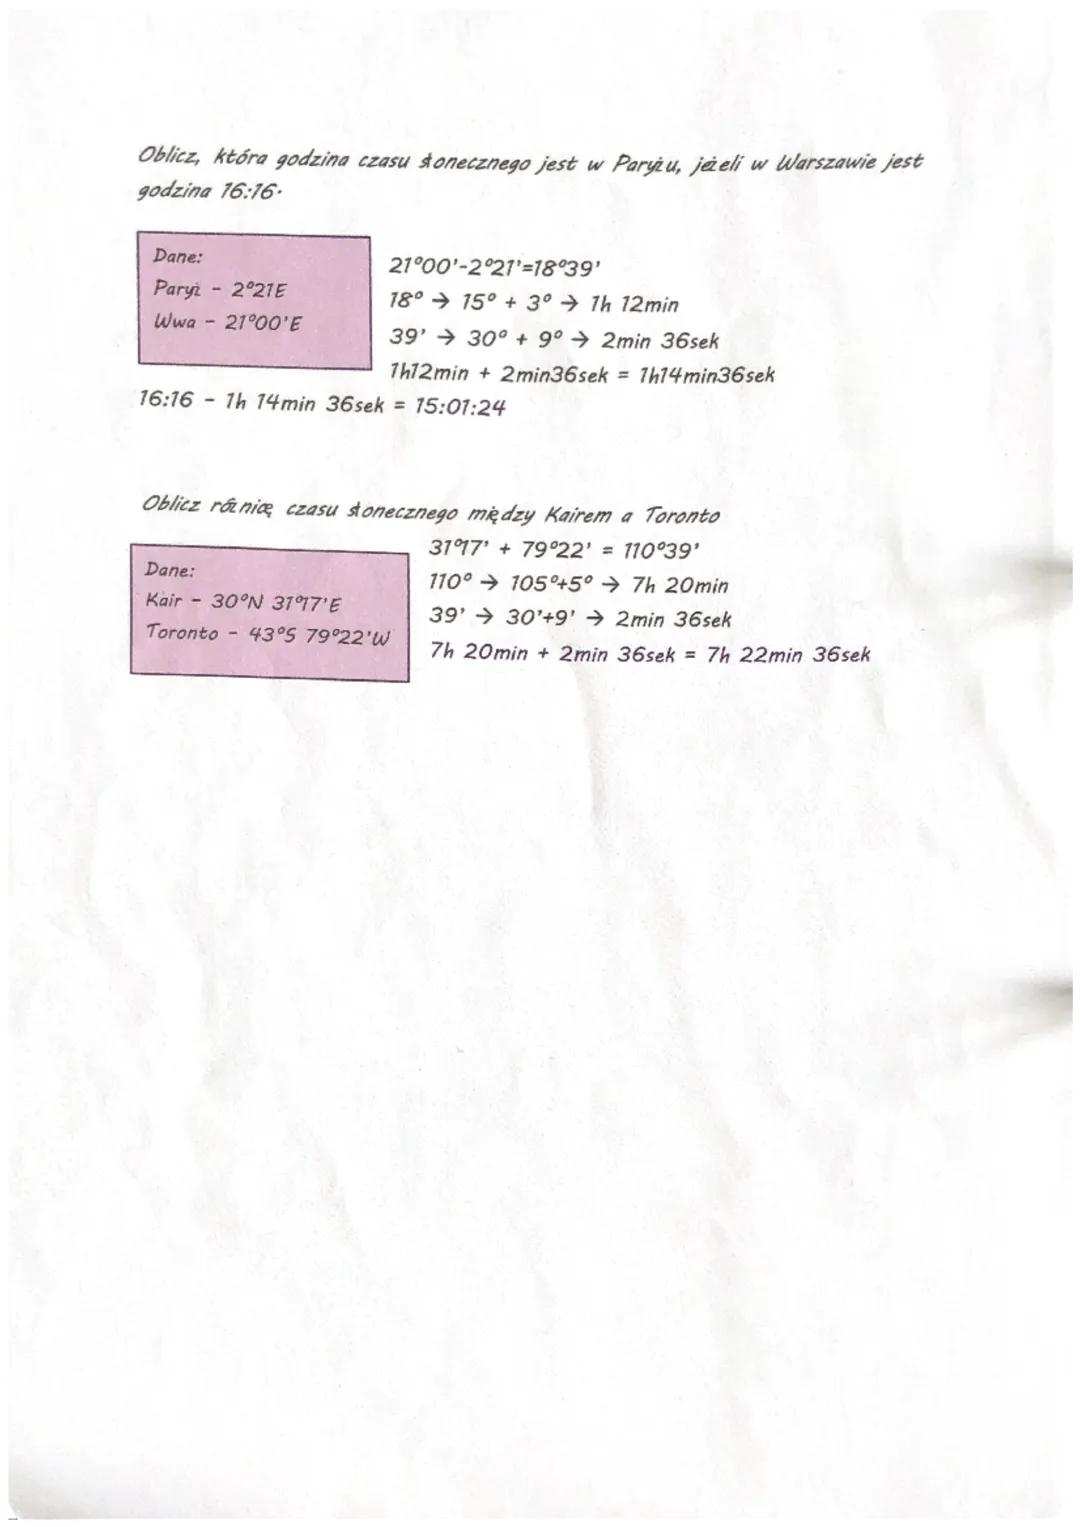 Oblicz, która godzina czasu słonecznego jest w Paryżu, jeżeli w Warszawie jest
godzina 16:16.
Dane:
Paryż - 2°21E
Wwa - 21°00'E
21°00'-2°21'=18°39'
18° → 15° + 3° → 1h 12min
39' → 30° + 9° → 2min 36sek
1h12min + 2min36sek = 1h14min36sek
16:16 - 1h 14min 36sek = 15:01:24
Oblicz różnicę czasu słonecznego między Kairem a Toronto
Dane:
Kair - 30°N 31°17'E
Toronto - 43°S 79°22'W
31°17' + 79°22' = 110°39'
110° → 105°+5° → 7h 20min
39' → 30'+9' → 2min 36sek
7h 20min + 2min 36sek = 7h 22min 36sek